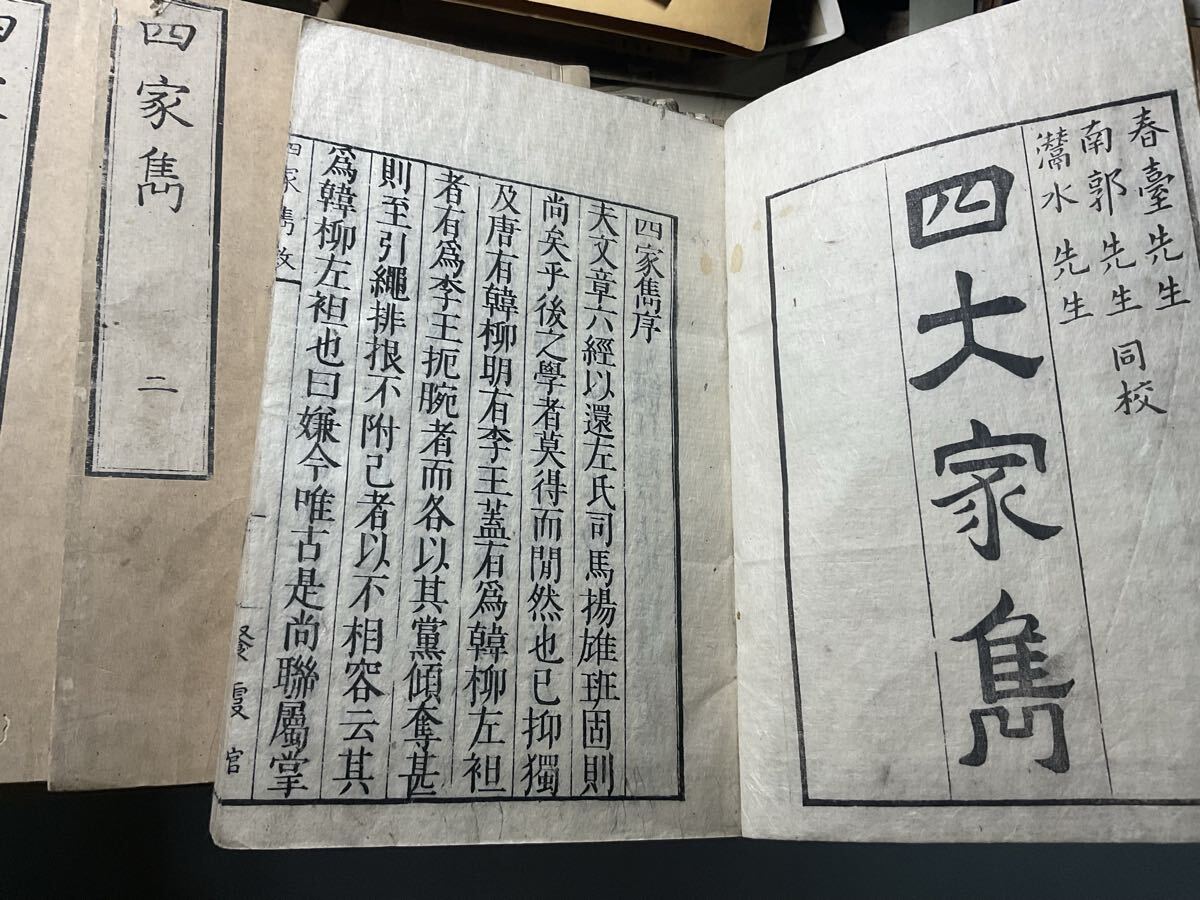 春臺先生
南郭先生 同校
灊水先生
四大家雋
四家雋序
夫文章六經以還左氏司馬揚雄班固則
尚矣乎後之學者莫得而閒然也已抑獨
及唐有韓柳明有李王蓋有為韓柳左袒
者有為李王扼腕者而各以其黨傾奪甚
則至引繩排根不附己者以不相容云其
為韓柳左袒也曰嫌今唯古是尚聯屬掌
四家雋敘
餐霞館
四家雋 二
四家